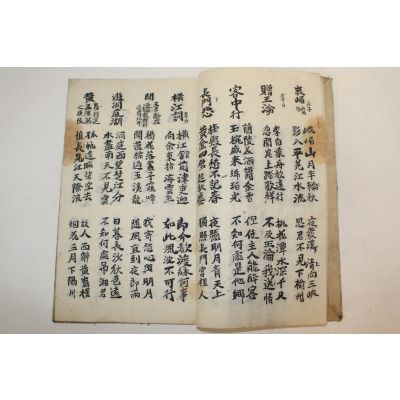 峨嵋山月半輪秋 夜發淸溪向三峽
影入平羌江水流 思君不見下渝州
贈王淪
李白乘舟將遠行 桃花潭水深千尺
不及王淪我送情
客中行
蘭陵美酒鬱金香 但使主人能醉客
玉椀盛來琥珀光 不知何處是他鄕
長門怨
桂殿長愁不記春 夜懸明月青天上
黃金四屋起秋塵 獨照長門宮裡人
橫江詞
橫江館前津吏迎 郎今欲渡緣何事
向余東指海雲生 如此風波不可行
聞
楊花落盡子規啼 我寄愁心與明月
聞道龍標過五溪 隨風直到夜郎西
遊洞庭湖
洞庭西望楚江分 日暮長沙秋色遠
水盡南天不見雲 不知何處吊湘君
黃
孤帆遠影碧空盡 故人西辭黃鶴樓
長見江天際流 烟花三月下陽州